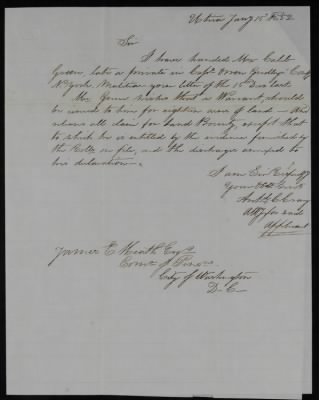 Utica Jany 15th 1852
Sir
I have handed Mr Calib
Green, late a private in Capt Orren Gridleys Co
N York Militia your letter of the 13th Dec last.
Mr Green wishes that a Warrant, should
be issued to him for eighteen acres of land - He
releases all claim for land Bounty, except that
to which he is entitled by the evidence furnished by
the Rolls on file, and the discharge annexed to
his declaration -
I am Sir Respfy
Your Obt Servt
Atty for said
Applicant
James E Heath Esqr
Comr of Pens
City of Washington
D. C -